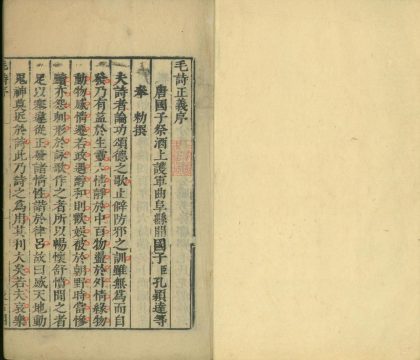 毛詩正義序
唐國子祭酒上護軍曲阜縣開國子臣孔穎達等
奉 勑撰
夫詩者論功頌德之歌止僻防邪之訓雖無為而自
發乃有益於生靈六情靜於中百物盪於外情緣物
動物感情遷若政遇醇和則歡娛被於朝野時當慘
黷亦怨刺形於詠歌作之者所以暢懷舒憤聞之者
足以塞違從正發諸情性諧於律呂故曰感天地動
鬼神莫近於詩此乃詩之為用其利大矣若夫哀樂